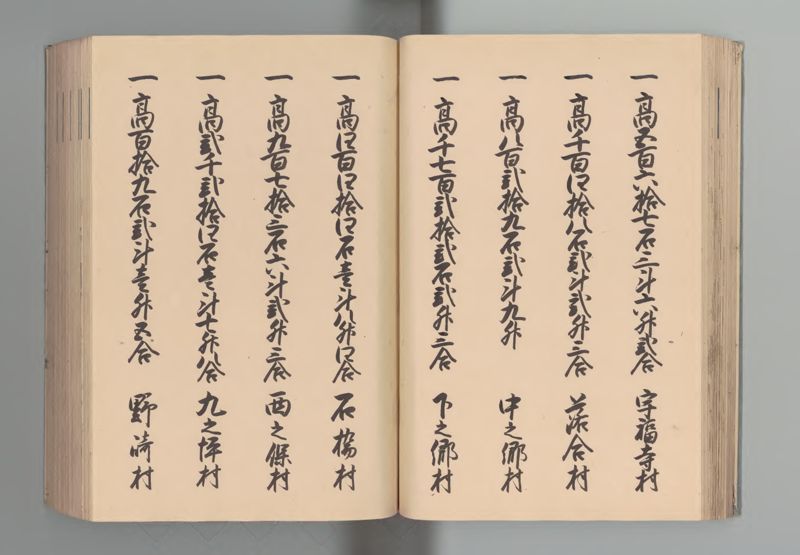 一 高五百六拾七石三斗六升弐合 宇福寺村
一 高千百四拾八石弐斗弐升三合 落合村
一 高八百弐拾九石弐斗九升 中之郷村
一 高千七百弐拾弐石弐升三合 下之郷村
一 高四百四拾四石壱斗八升四合 石橋村
一 高九百七拾三石六斗弐升三合 西之保村
一 高弐千弐拾四石壱斗七升八合 九之坪村
一 高百拾九石弐斗壱升五合 野崎村